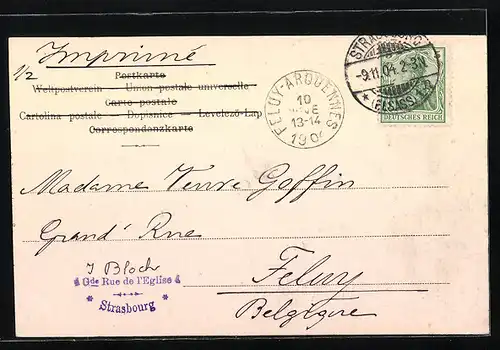 Imprimé
1/2
Postkarte
Weltpostverein — Union postale universelle
Carte postale
Cartolina postale — Dopisnice — Levelező-Lap
Correspondenzkarte
FELUY-ARQUENNES
10
13-14
1904
STRASSBURG
-9.11.04. 2-3N
* (ELSASS) 1.
DEUTSCHES REICH
Madame Veuve Goffin
Grand' Rue
Feluy
Belgique
J Bloch
Gde Rue de l'Eglise
* Strasbourg *